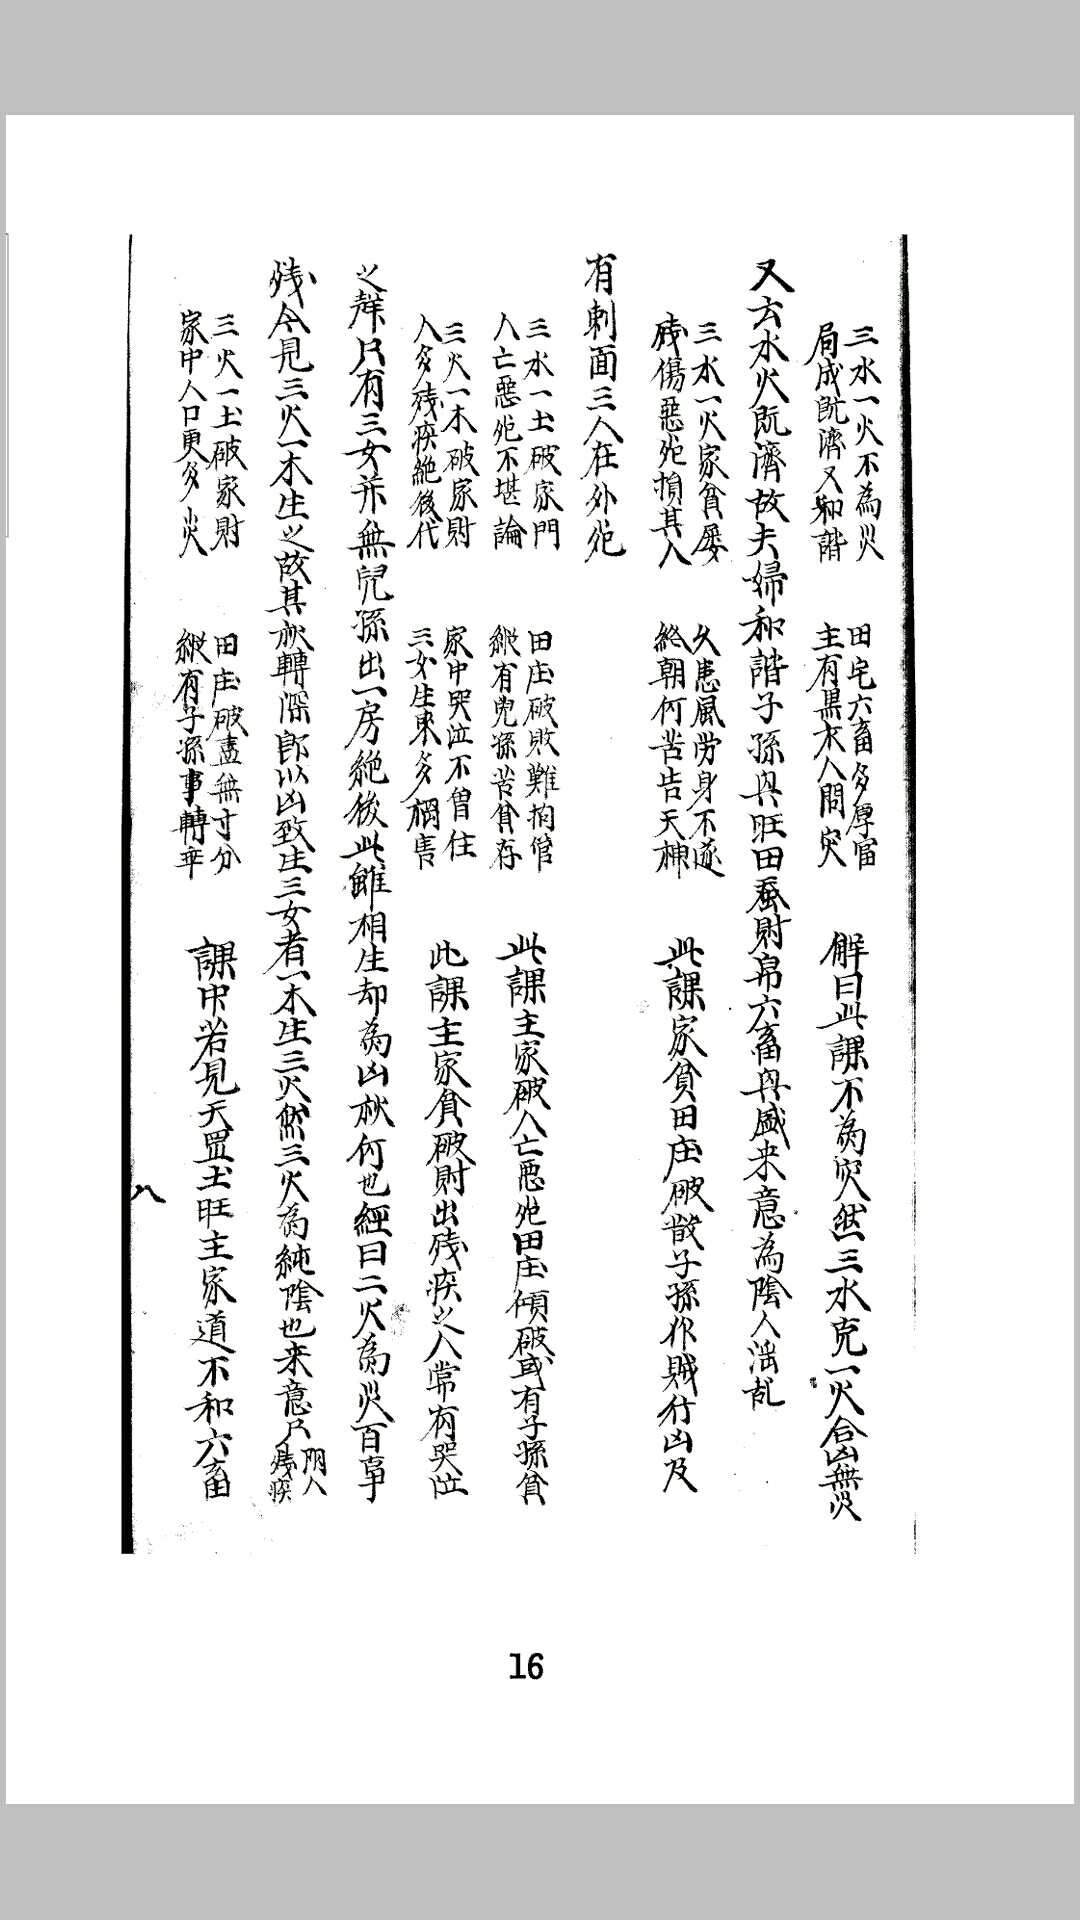 三水一火不為災　田宅六畜多厚富
局成旣濟又和諧　主有黒衣人問灾
解曰此課不為灾然三水克一火合凶無災
又云水火旣濟故夫婦和諧子孫興旺田蚕財帛六畜興盛来意為陰人淫乱
三水一火家貧屡　久患風劳身不遂
残傷惡死損其人　終朝何苦告天神
此課家貧田庄破散子孫作賊行凶及
有刺面三人在外死
三水一土破家門　田庄破敗難拘管
人亡惡死不堪論　縱有兒孫苦貧存
此課主家破人亡惡死田庄傾破或有子孫貧
三火一木破家財　家中哭泣不曽住
人多残疾絶後代　三女生来多
此課主家貧破財出残疾之人常有哭泣
之聲只有三女并無兒孫出一房絶後此雖相生却為凶秋何也經曰二火為災百事
残今見三火一木生之故其禍轉深即以凶致生三女者一木生三火然三火為純陰也来意只
残疾
三火一土破家財　田庄破盡無寸分
家中人口更多災　縱有子孫事轉乖
課中若見天罡土旺主家道不和六畜
八
16